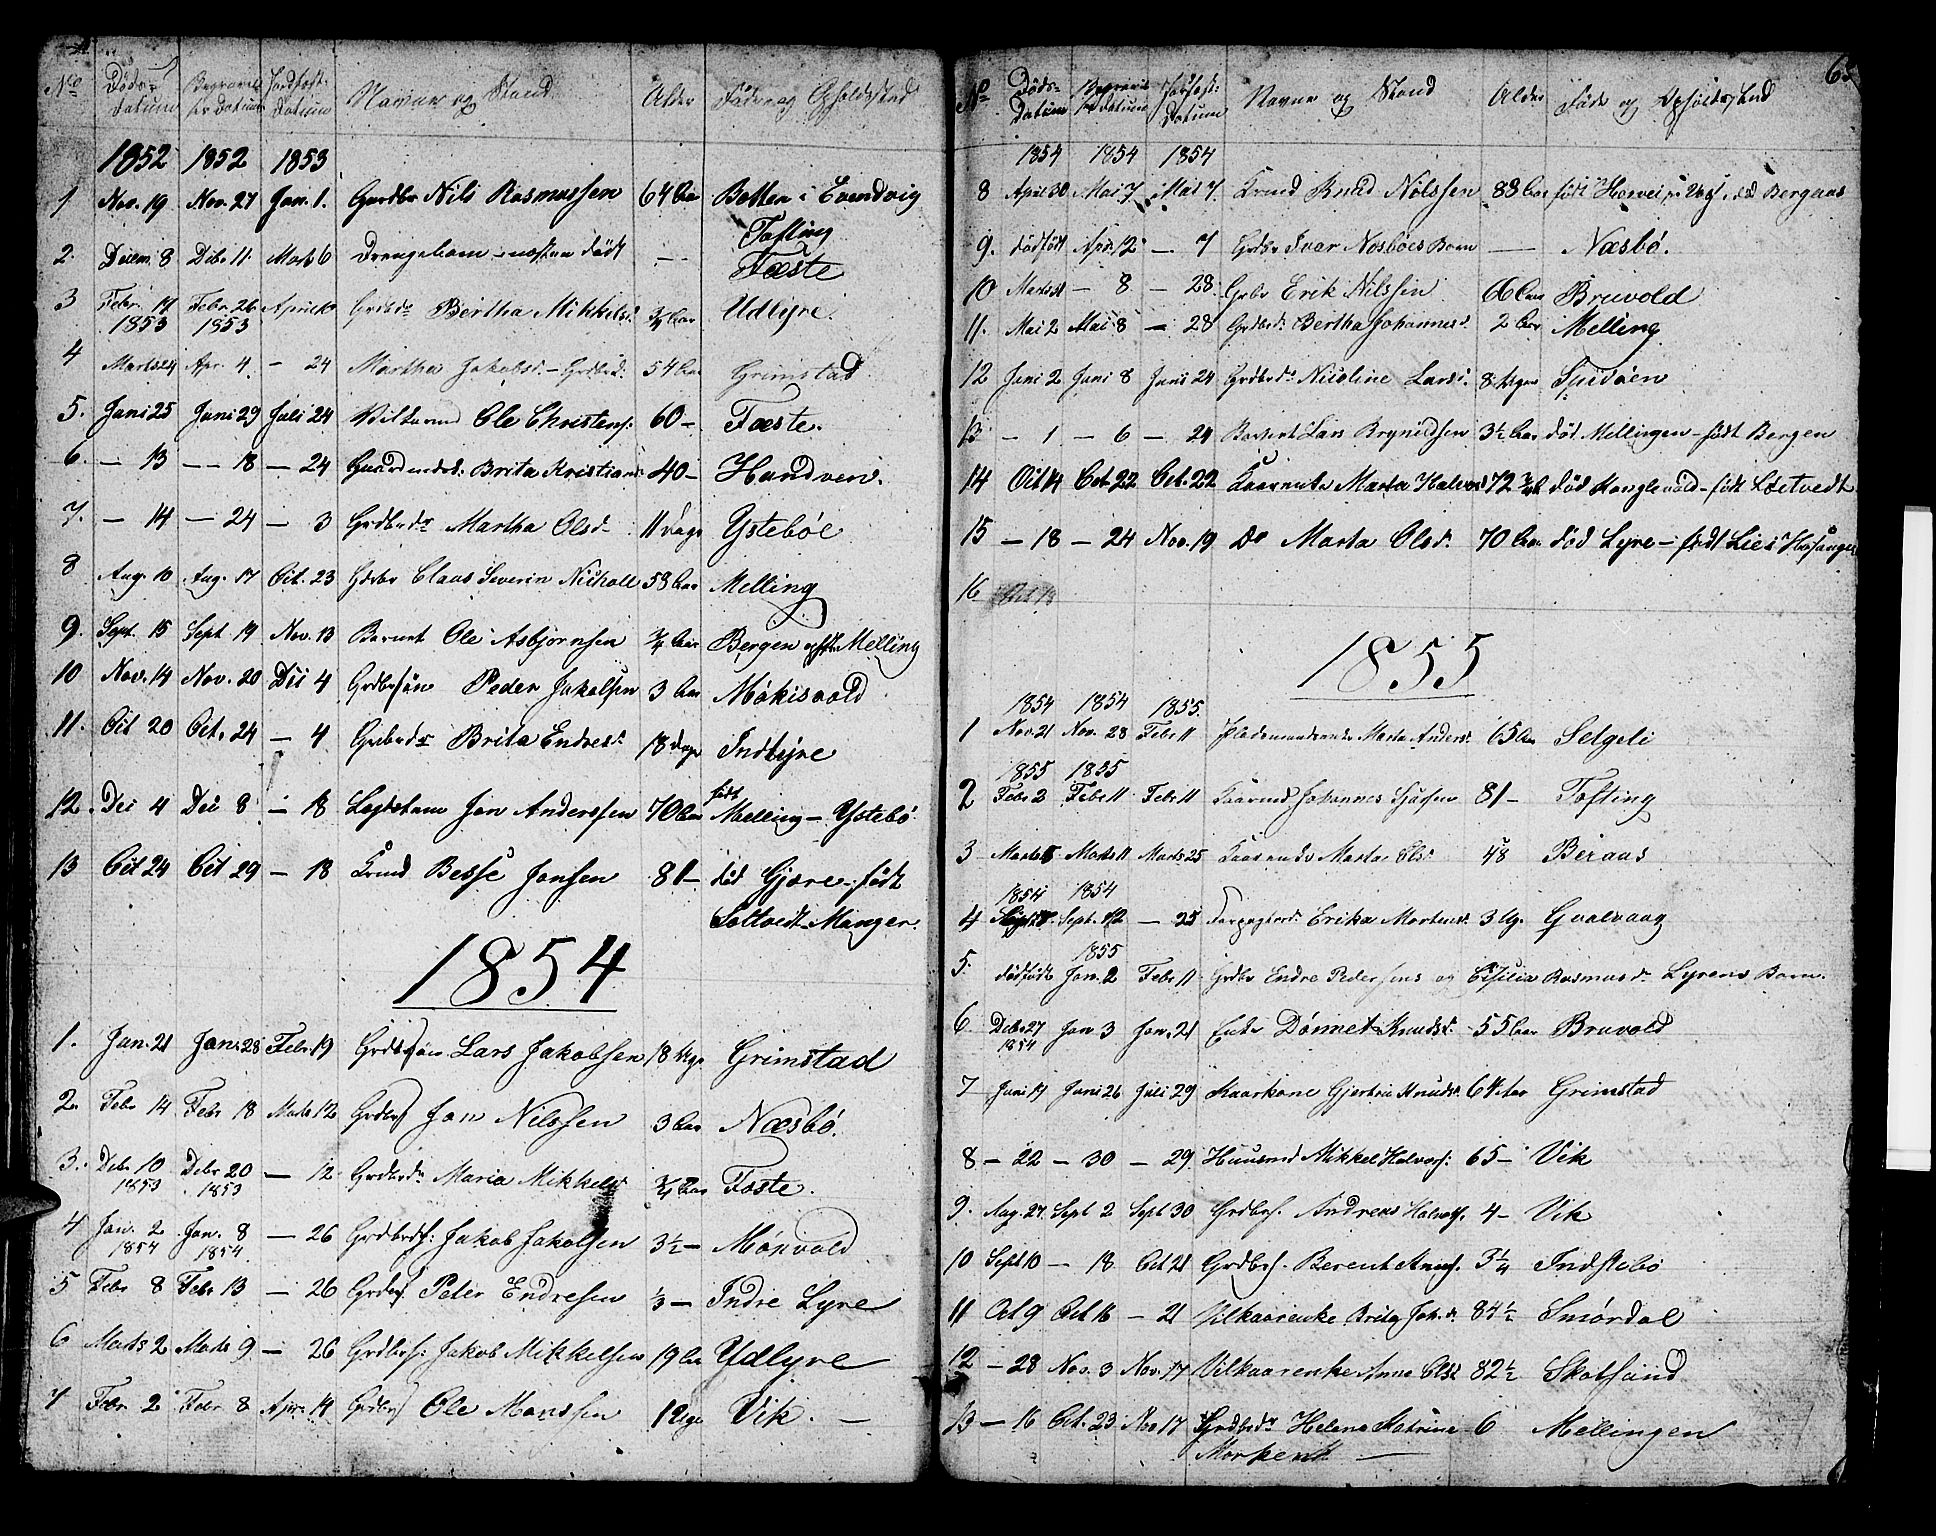 No Døds- Datum Begravelses Datum Jordfæst: Datum Navne og Stand Alder Føde og Opholdsted
1852 1852 1853
1 Nov. 19 Nov. 27 Jan. 1. Grdbr Nils Rasmussen 64 Aar Botten i Evendvig
2. Decem. 8 Debr 11. Marts 6 Drengebarn født Tofting Fæste
3 Febr. 17 Febr. 26 April Grdbrdr Bertha Mikkelsd. 3/4 Aar Udlyre.
1853 1853
4 Marts 24 Apr. 4 — 24 Martha Jakobsd. - Grdbrd. 54 Aar Grimstad
5. Juni 25 Juni 29 Juli 24 Vilkarmd Ole Christens. 60 — Fæste.
6. — 13 — 18 — 24 Brita Kristians 40 — Handven.
7. — 14 — 24 — 3 Grdbrdr Martha Olsd. 11 Dage Ystebøe
8 Aug. 10 Aug. 17 Oct. 23 Grdbr Claus Severin 58 Aar Melling
9. Sept. 15 Sept 19 Nov. 13 Barnet Ole Asbjørnsen 3/4 Aar Bergen Melling
10 Nov. 14 Nov. 20 Dec 4 Grdbrsøn Peder Jakobsen 3 Aar
11. Oct 20 Oct. 24 — 4 Grdbrdr Brita Endresd. 18 Dage Indlyre
12. Dec 4 Dec 8 — 18 Lægdslem Jon Anderssen 70 Aar født Melling — Ystebø
13 Oct 24 Oct 29 — 18 Besse Jonsen 81 — død Gjære - født
Manger.
1854
1. Jan. 21 Jan. 28 Febr. 19 Grdbrsøn Lars Jakobsen 18 Uger Grimstad
2. Febr 14 Febr 18 Marts 12 Grdbrs Jon Nilssen 3 Aar Næsbø.
3. Debr 10 Debr 20 — 12 Grdbrdr Maria Mikkelsd 3/4 Aar Foste.
1853 1853
4 Jan. 2 Jan. 8 — 26 Grdbrs: Jakob Jakobsen 3½ —
1854 1854
5 Febr 8 Febr 13 — 26 Grdbrs Peter Endresen 1/3 — Indre Lyre
6 Marts 2 Marts 9 — 26 Grdbrs: Jakob Mikkelsen 19 Aar Ydlyre
7 Febr 2 Febr 8 Apr. 14 Grdbrs Ole Monssen 1 Uge Vik. —
65
No Døds- Datum Begravelses Datum Jordfæst: Datum Navne og Stand Alder Føde og Opholdsted
1854 1854 1854
8 April 30 Mai 7 Mai 7. Knud Nilssen 88 Aar født død Bergaas
9. dødfødt Apr. 12 — 7 Grdbr Ivar Nesbøes Barn — Næsbø.
10 Marts 31 — 8 — 28. Grbr Erik Nilssen Bruvold
11. Mai 2 Mai 8 — 28 Grdbrd. Bertha Johannesd. 2 Aar Melling.
12 Juni 2 Juni 8 Juni 24 Grdbrdr Nicoline Larsd. 8 Uger
13 — 1 — 6 — 24 Barnet Lars Brynildsen 3½ Aar død Mellingen - født Bergen
14 Oct 14 Oct 22 Oct. 22 Kaarenke Marta 72 død født
15 — 18 — 24 Nov. 19 Do Marta Olsd. 70 Aar død Lyre - født Lie i Hosanger
16
1855
1854 1854 1855.
1 Nov. 21 Nov. 28 Febr 11 Marta Andersd. 65 Aar Selgeli
1855 1855
2 Febr 2 Febr 11 Febr 11 Kaarmd Johannes 81 — Tofting
3 Marts Marts 11 Marts 25 Marta Olsd 48
1854 1854
4 Sept. Sept. 12 — 25 Erika Mortensd. 3 Ug. Gvalvaag
1855
5. dødfødt Jan. 2 Febr 11 Grdbr Endre Pedersens og Cicilia Rasmusdr Lyrens Barn.
6 Debr 27 Jan 3 Jan. 21 Enke Dønnet Knudsd. 55 Aar Bruvold
1854
7 Juni 14 Juni 26 Juli 29 Kaarkone Gjertrui Knudsd. Grimstad
8 — 22 — 30 — 29 Huusmd Mikkel Halvors. 65 — Vik
9. Aug. 27 Sept 2 Sept 30 Grdbrs. Andreas Halvors. 4 — Vik
10 Sept 10 — 18 Oct 21 Grdbrs. Berent 3¼
11 Oct 9 Oct 16 — 21 Vilkaarenke Brita Joh.d. 84½ Smørdal
12 — 28 Nov. 3 Nov. 17 Vilkaarenke Anne Olsd 82½ Skotsund
13 — 16 Oct. 23 Nov 17 Grdbrdr Helene Katrine 6 Mellingen
—